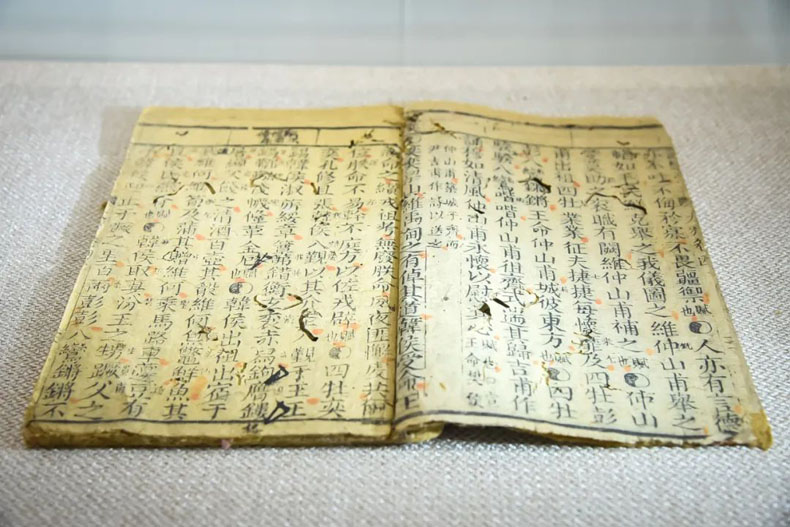 不吐不侮矜寡不畏彊禦賦也〇人亦有言德
輶如克舉之我儀圖之維仲山甫舉之
愛助之衮職有闕維仲山甫補之賦也〇仲山
甫出祖四牡業業征夫捷捷每懷靡及四牡彭
彭八鸞鏘鏘王命仲山甫城彼東方賦也〇四牡
騤騤八鸞喈喈仲山甫徂齊式遄其歸吉甫作
誦穆如清風仲山甫永懷以慰其心賦也
仲山甫築城于齊而
尹吉甫作詩以送之
奕奕梁山維禹甸之有倬其道韓侯受命王
親命之纘戎祖考無廢朕命夙夜匪解虔共爾
位朕命不易榦不庭方以佐戎辟賦也〇四牡奕
奕孔修且張韓侯入覲以其介圭入覲于王王
錫韓侯淑旂綏章簟茀錯衡玄衮赤舄鉤膺鏤
鞗革金厄賦也〇韓侯出祖出宿于
顯父餞之清酒百壺其殽維何炰鼈鮮魚其
蔌維何維筍及蒲其贈維何乘馬路車籩豆有
且侯氏燕胥賦也〇韓侯取妻汾王之甥蹶父之
止于蹶之里百兩彭彭八鸞鏘鏘不